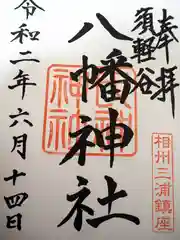 奉拝
須軽谷
八幡神社
令和二年六月十四日
相州三浦鎮座